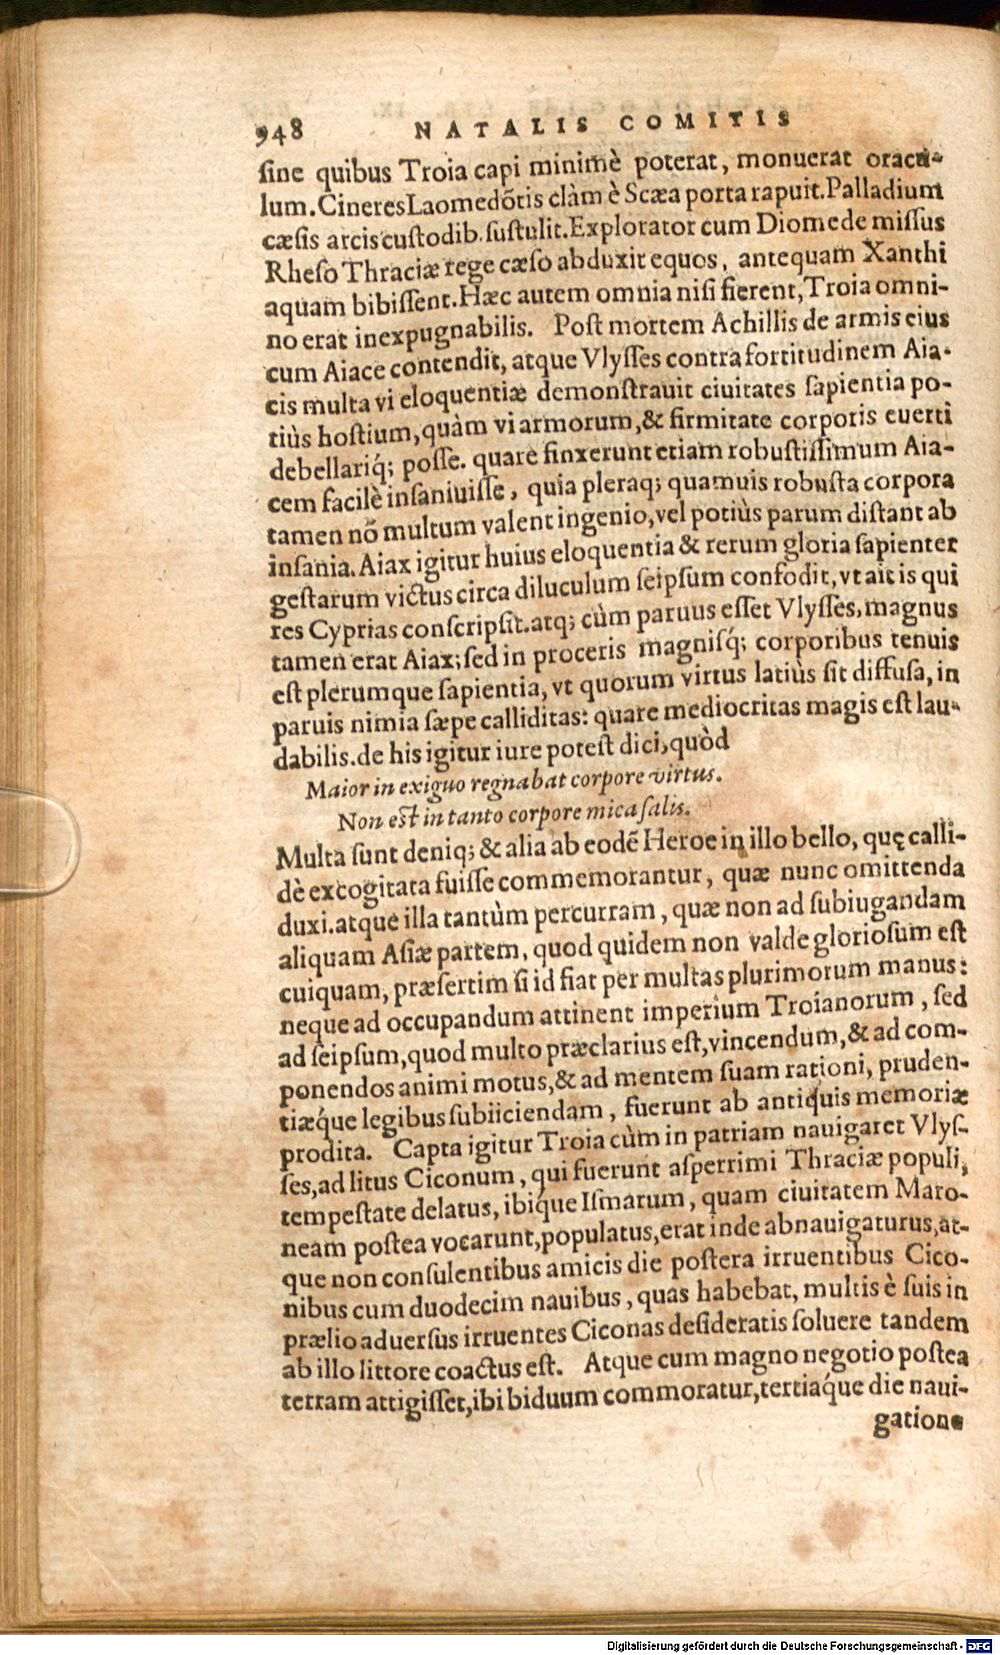 948 NATALIS COMITIS
ſine quibus Troia capi minimè poterat, monuerat oracu-
lum. Cineres Laomedõtis clàm è Scæa porta rapuit. Palladium
cæſis arcis cuſtodib. ſuſtulit. Explorator cum Diomede miſſus
Rheſo Thraciæ rege cæſo abduxit equos, antequam Xanthi
aquam bibiſſent. Hæc autem omnia niſi fierent, Troia omni-
no erat inexpugnabilis. Poſt mortem Achillis de armis eius
cum Aiace contendit, atque Vlyſſes contra fortitudinem Aia-
cis multa vi eloquentiæ demonſtrauit ciuitates ſapientia po-
tiùs hoſtium, quàm vi armorum, & firmitate corporis euerti
debellariq́; poſſe. quare finxerunt etiam robuſtiſſimum Aia-
cem facilè inſaniuiſſe, quia pleraq; quamuis robuſta corpora
tamen nõ multum valent ingenio, vel potiùs parum diſtant ab
inſania. Aiax igitur huius eloquentia & rerum gloria ſapienter
geſtarum victus circa diluculum ſeipſum confodit, vt ait is qui
res Cyprias conſcripſit. atq; cùm paruus eſſet Vlyſſes, magnus
tamen erat Aiax; ſed in proceris magniſq́; corporibus tenuis
eſt plerumque ſapientia, vt quorum virtus latiùs ſit diffuſa, in
paruis nimia ſæpe calliditas: quare mediocritas magis eſt lau-
dabilis. de his igitur iure poteſt dici, quòd
Maior in exiguo regnabat corpore virtus.
Non eſt in tanto corpore mica ſalis.
Multa ſunt deniq; & alia ab eodẽ Heroe in illo bello, quę calli-
dè excogitata fuiſſe commemorantur, quæ nunc omittenda
duxi. atque illa tantùm percurram, quæ non ad ſubiugandam
aliquam Aſiæ partem, quod quidem non valde glorioſum eſt
cuiquam, præſertim ſi id fiat per multas plurimorum manus:
neque ad occupandum attinent imperium Troianorum, ſed
ad ſeipſum, quod multo præclarius eſt, vincendum, & ad com-
ponendos animi motus, & ad mentem ſuam rationi, pruden-
tiæq́ue legibus ſubiiciendam, fuerunt ab antiquis memoriæ
prodita. Capta igitur Troia cùm in patriam nauigaret Vlyſ-
ſes, ad litus Ciconum, qui fuerunt aſperrimi Thraciæ populi,
tempeſtate delatus, ibiq́ue Iſmarum, quam ciuitatem Maro-
neam poſtea vocarunt, populatus, erat inde abnauigaturus, at-
que non conſulentibus amicis die poſtera irruentibus Cico-
nibus cum duodecim nauibus, quas habebat, multis è ſuis in
prælio aduerſus irruentes Ciconas deſideratis ſoluere tandem
ab illo littore coactus eſt. Atque cum magno negotio poſtea
terram attigiſſet, ibi biduum commoratur, tertiaq́ue die naui-
gatione
Digitalisierung gefördert durch die Deutsche Forschungsgemeinschaft - DFG